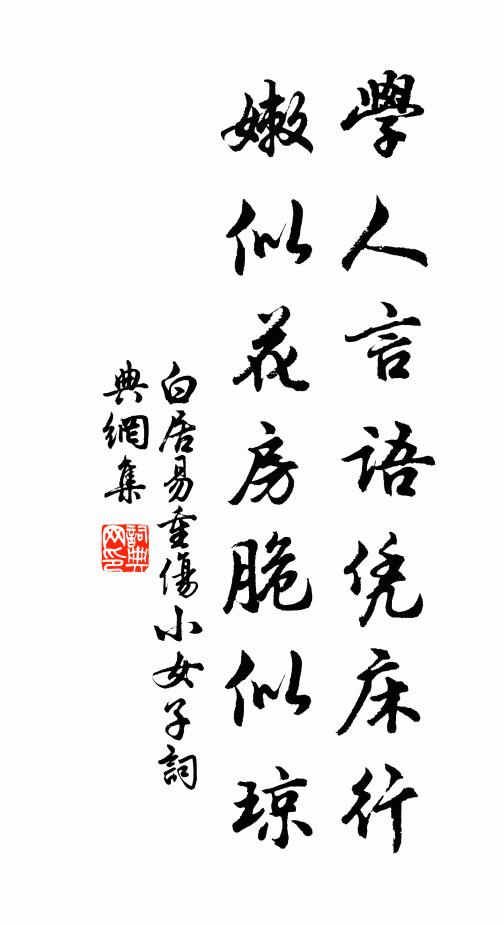 學人言語凭床行
嫩似花房脆似琼
白居易重傷小女子詞
典網集
詞典
网印